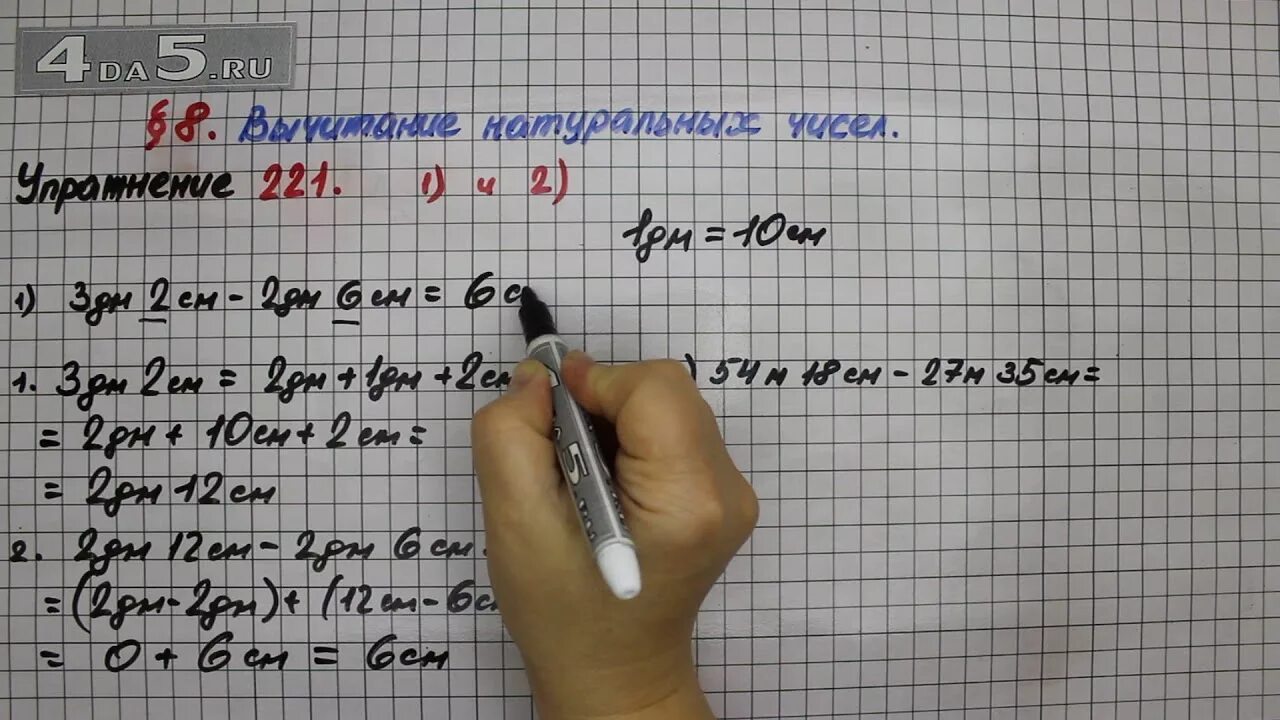 4DA5.RU
§ 8. Вычитание натуральных чисел.
Упражнение 221. 1) и 2)
1дм = 10см
1) 3дм 2см - 2дм 6см = 6с
1. 3дм 2см = 2дм + 1дм + 2см
) 54м 18см - 27м 35см =
= 2дм + 10см + 2см =
= 2дм 12см
2. 2дм 12см - 2дм 6см
= (2дм - 2дм) + (12см - 6см
= 0 + 6см = 6см